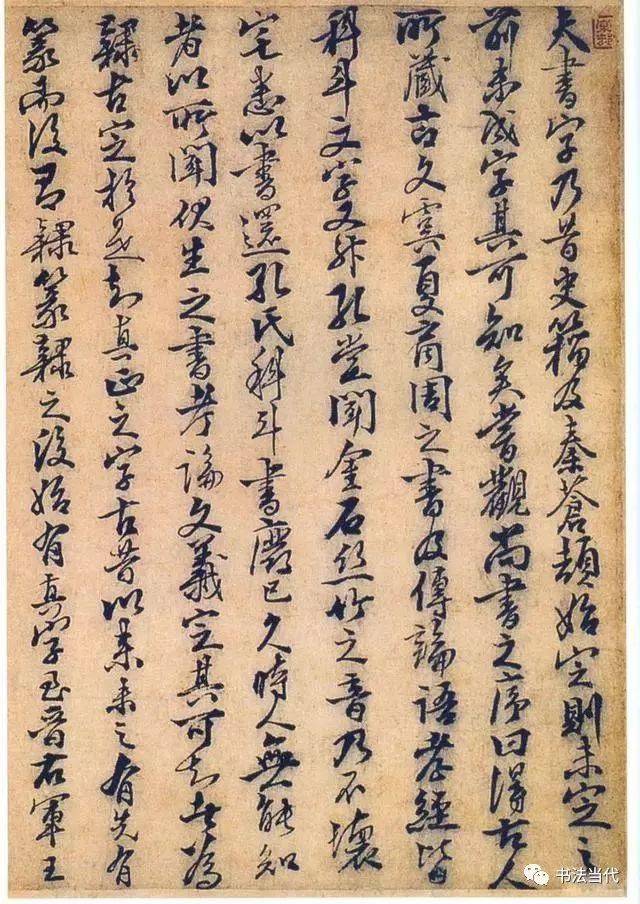 夫書字乃昔史籀及秦蒼頡始定則未定之
前未成字其可知矣嘗觀尚書之序曰得古人
所藏古文虞夏商周之書及傳論語孝經皆
科斗文字又升孔堂聞金石絲竹之音乃不壞
宅悉以書還孔氏科斗書廢已久時人無能知
者以所聞伏生之書考論文義定其可知者為
隸古定於是知真正之字古昔以來未之有先有
篆而後有隸篆隸之後始有真字至晉右軍王
书法当代